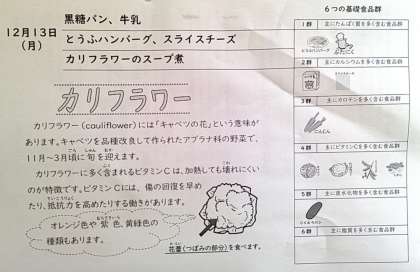 黒糖パン、牛乳
12月13日
(月)
とうふハンバーグ、スライスチーズ
カリフラワーのスープ煮
カリフラワー
カリフラワー(cauliflower)には「キャベツの花」という意味が
あります。キャベツを品種改良して作られたアブラナ科の野菜で、
11月~3月頃に旬を迎えます。
カリフラワーに多く含まれるビタミンCは、加熱しても壊れにくい
のが特徴です。ビタミンCには、傷の回復を早め
たり、抵抗力を高めたりする働きがあります。
オレンジ色や紫色、黄緑色の
種類もあります。
花蕾(つぼみの部分)を食べます。
6つの基礎食品群
1群 主にたんぱく質を多く含む食品群
とうふハンバーグ
2群 主にカルシウムを多く含む食品群
3群 主にカロテンを多く含む食品群
にんじん
4群 主にビタミンCを多く含む食品群
5群 主に炭水化物を多く含む食品群
6群 主に脂質を多く含む食品群